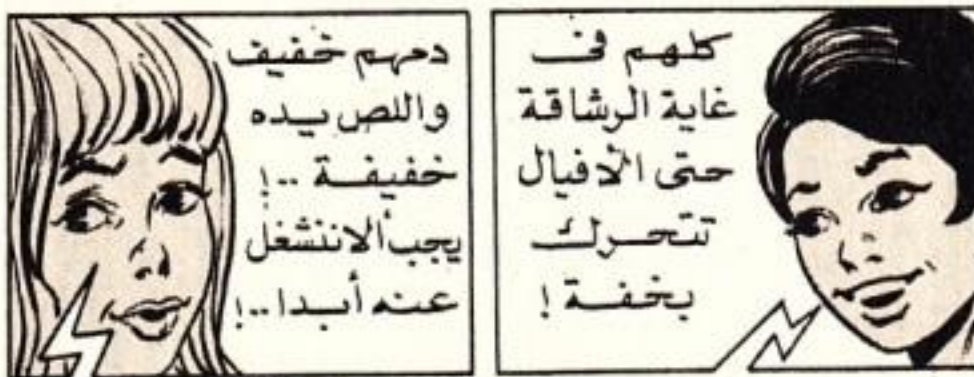 كلهم فى
غاية الرشاقة
حتى الأفيال
تتحرك
بخفة !
دمهم خفيف
واللص يده
خفيفة ..!
يجب ألا ننشغل
عنه أبدا ..!